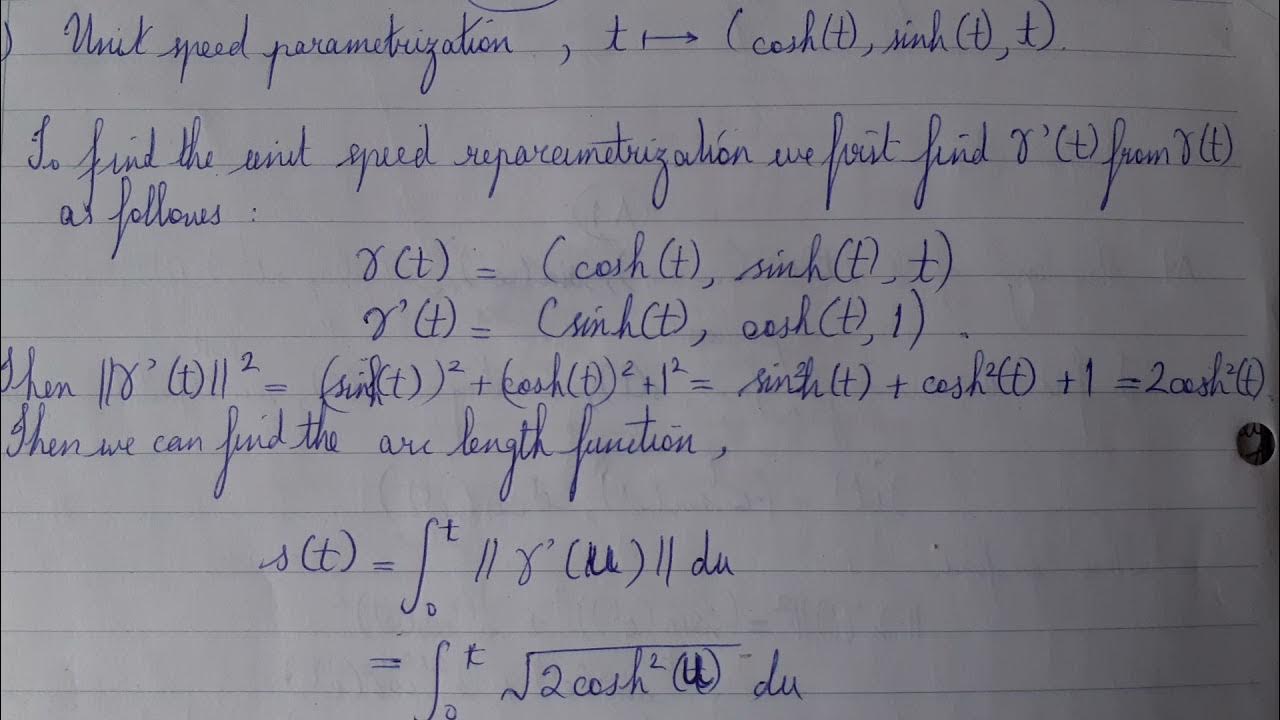 ) Unit speed parametrization , t ↦ (cosh(t), sinh(t), t).
To find the unit speed reparametrization we first find γ'(t) from γ(t)
as follows :
γ(t) = (cosh(t), sinh(t), t)
γ'(t) = (sinh(t), cosh(t), 1) .
Then ||γ'(t)||² = (sinh(t))² + (cosh(t))² + 1² = sinh²(t) + cosh²(t) + 1 = 2cosh²(t)
Then we can find the arc length function,
s(t) = ∫₀ᵗ ||γ'(u)|| du
= ∫₀ᵗ √(2cosh²(u)) du